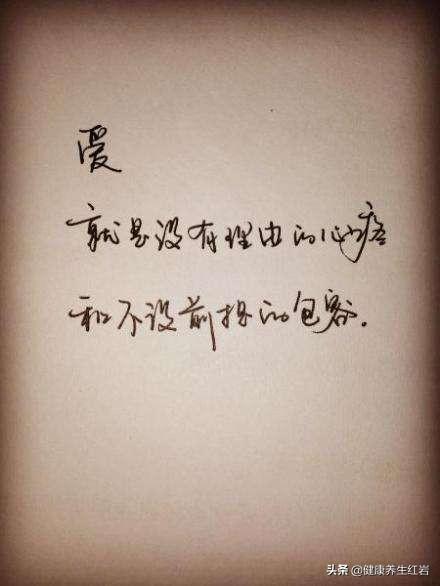 爱
就是没有理由的心疼
和不设前提的包容.
头条 @健康养生红岩